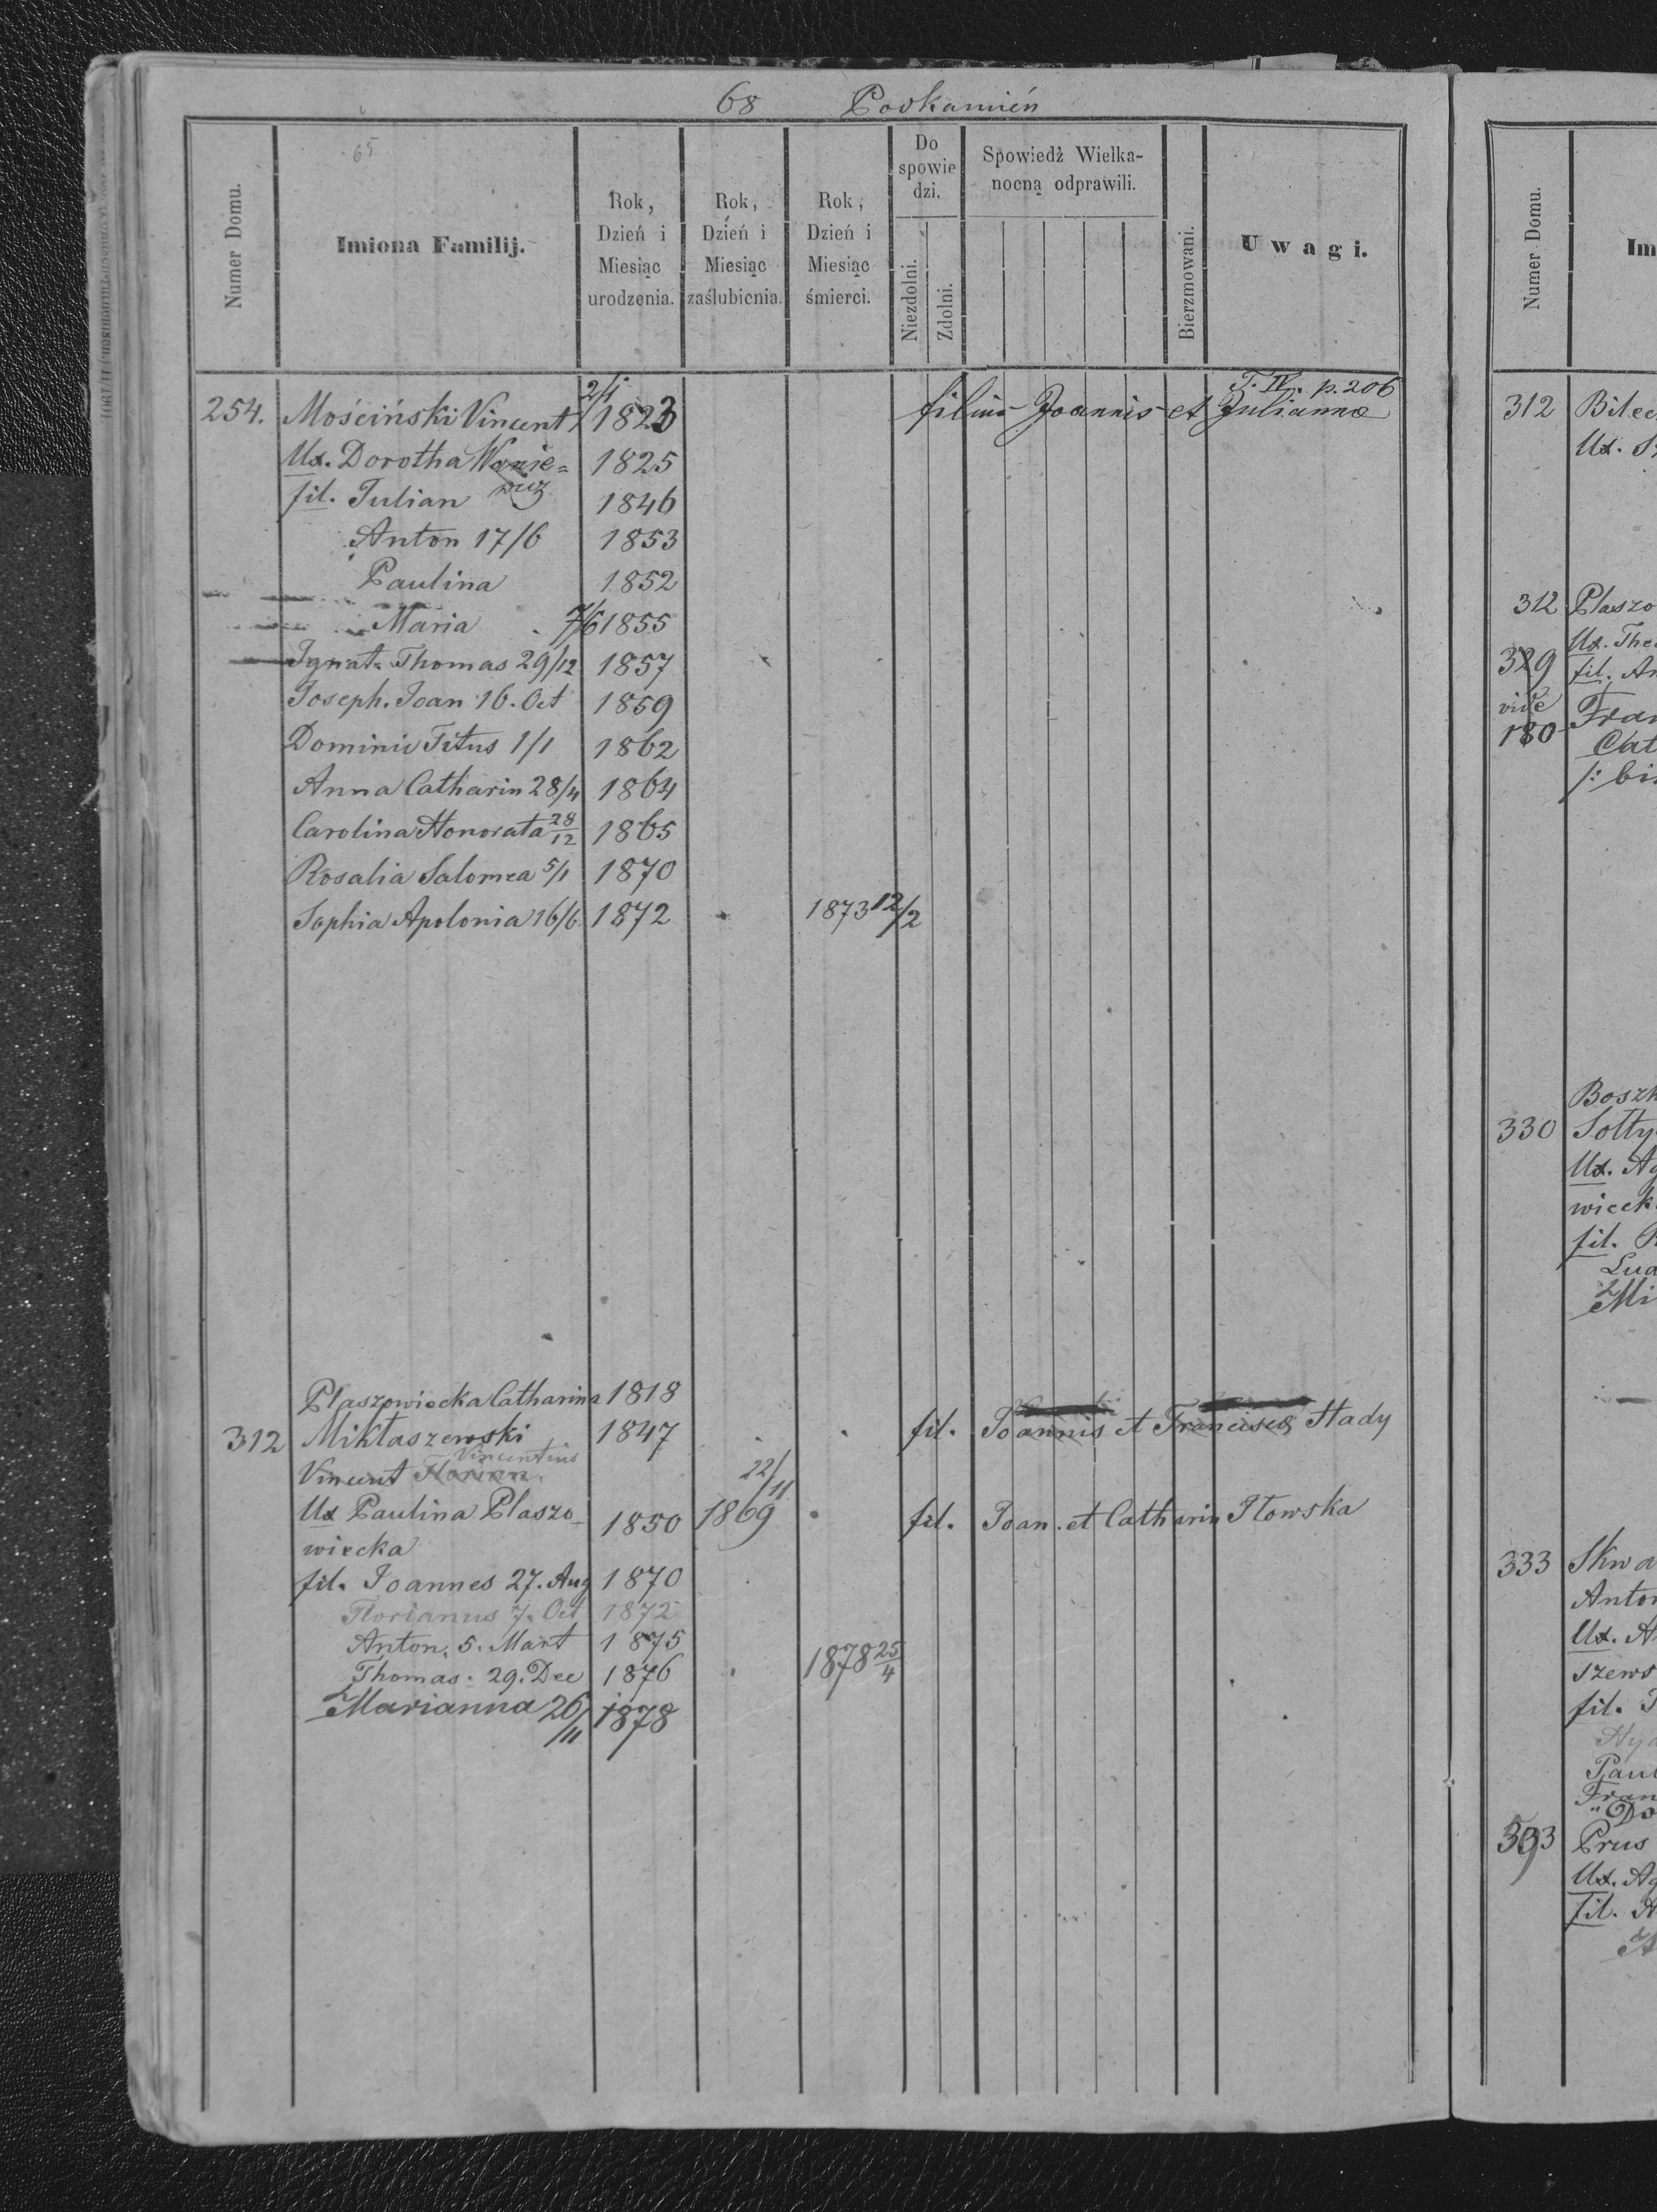 68 Podkamień
65
Numer Domu.
Imiona Familij.
Rok, Dzień i Miesiąc urodzenia.
Rok, Dzień i Miesiąc zaślubienia.
Rok, Dzień i Miesiąc śmierci.
Do spowiedzi.
Niezdolni.
Zdolni.
Spowiedź Wielkanocną odprawili.
Bierzmowani.
Uwagi.
T. IV. p. 206
254. Mościński Vincent 2/1 1823 filius Joannis et Julianna
Ux. Dorotha Wanie= 1825
wicz
fil. Julian 1846
Anton 17/6 1853
Paulina 1852
Maria 7/6 1855
Ignat. Thomas 29/12 1857
Joseph. Joan 16. Oct 1859
Dominic Titus 1/1 1862
Anna Catharin 28/4 1864
Carolina Honorata 28/12 1865
Rosalia Salomea 5/1 1870
Sophia Apolonia 16/6 1872 1873 12/2
Płaszowiecka Catharina 1818
312 Mikłaszewski 1847 fil. Joannis et Francisca Hady
Vincentius
Vincent Florian.
22/11
Ux Paulina Płaszo- 1850 1869 fil. Joan. et Catharin Iłowska
wiecka
fil. Joannes 27. Aug 1870
Florianus 7. Oct 1872
Anton. 5. Mart 1875
Thomas. 29. Dec 1876 1878 25/4
Marianna 26/11 1878
Numer Domu.
Im
312 Bilec
Ux.
312 Płaszo
Ux. The
329 fil. An
vide Fran
180 Cat
/: bi
Boszk
330 Sołty
Ux. Ag
wieck
fil.
Lud
Mi
333 Skwa
Anton
Ux. A
szews
fil.
Hya
Paul
Fran
" Do
393 Prus
Ux. Ag
fil. A